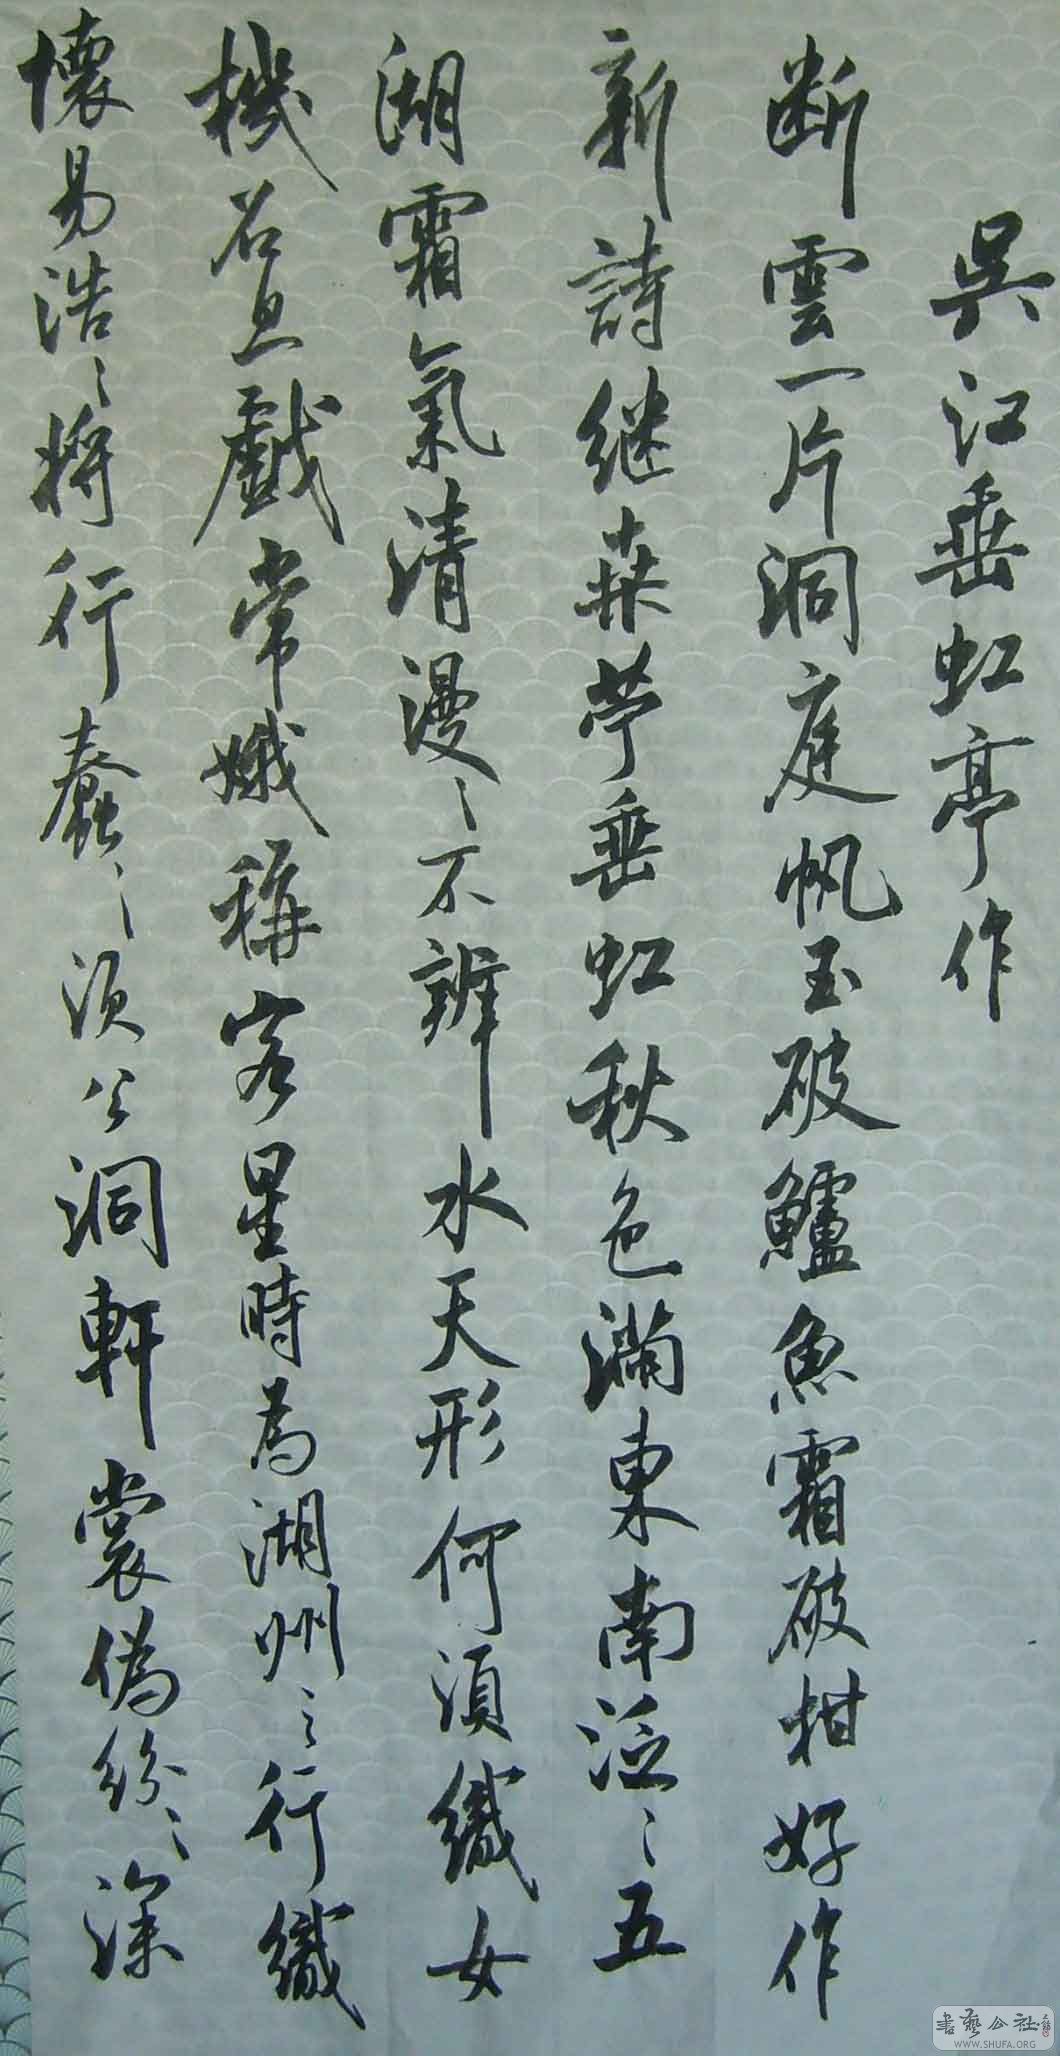 吳江垂虹亭作
断雲一片洞庭帆玉破鱸魚霜破柑好作
新詩継桑苧垂虹秋色滿東南泛〻五
湖霜氣清漫〻不辨水天形何湏織女
機石且戲常娥稱客星時為湖州之行織
懷易浩〻将行蠢〻湏公洞軒裳偽紛〻深
書藝公社
WWW.SHUFA.ORG